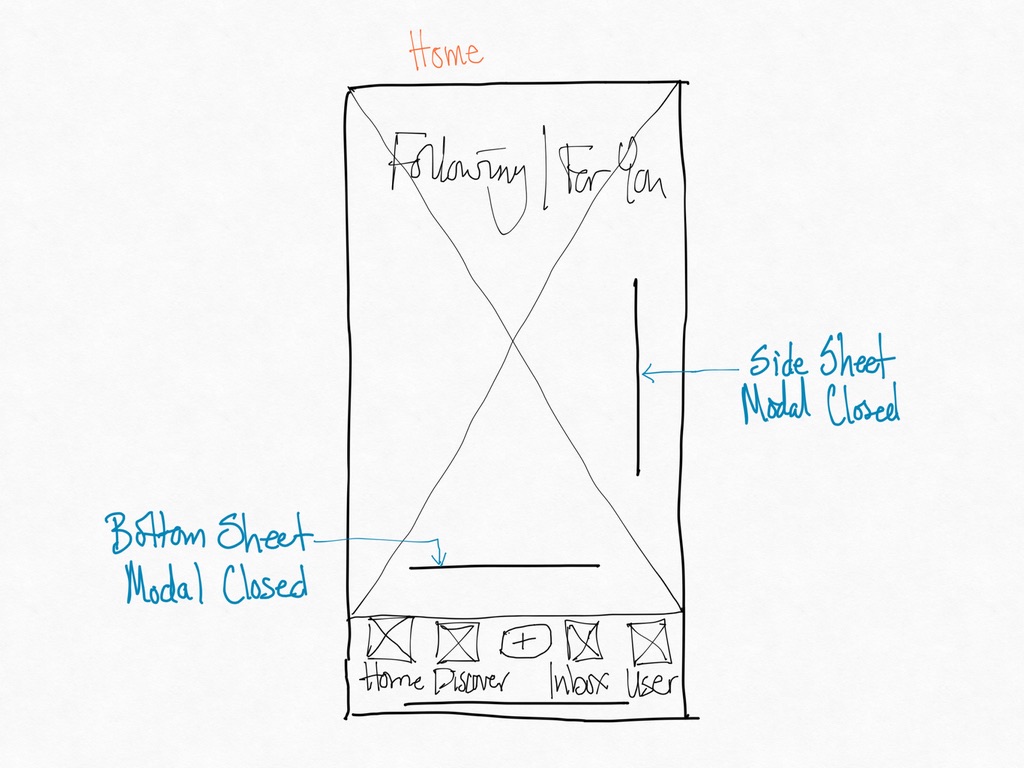 Home
Following | For You
Side Sheet
Modal Closed
Bottom Sheet
Modal Closed
+
Home Discover Inbox User